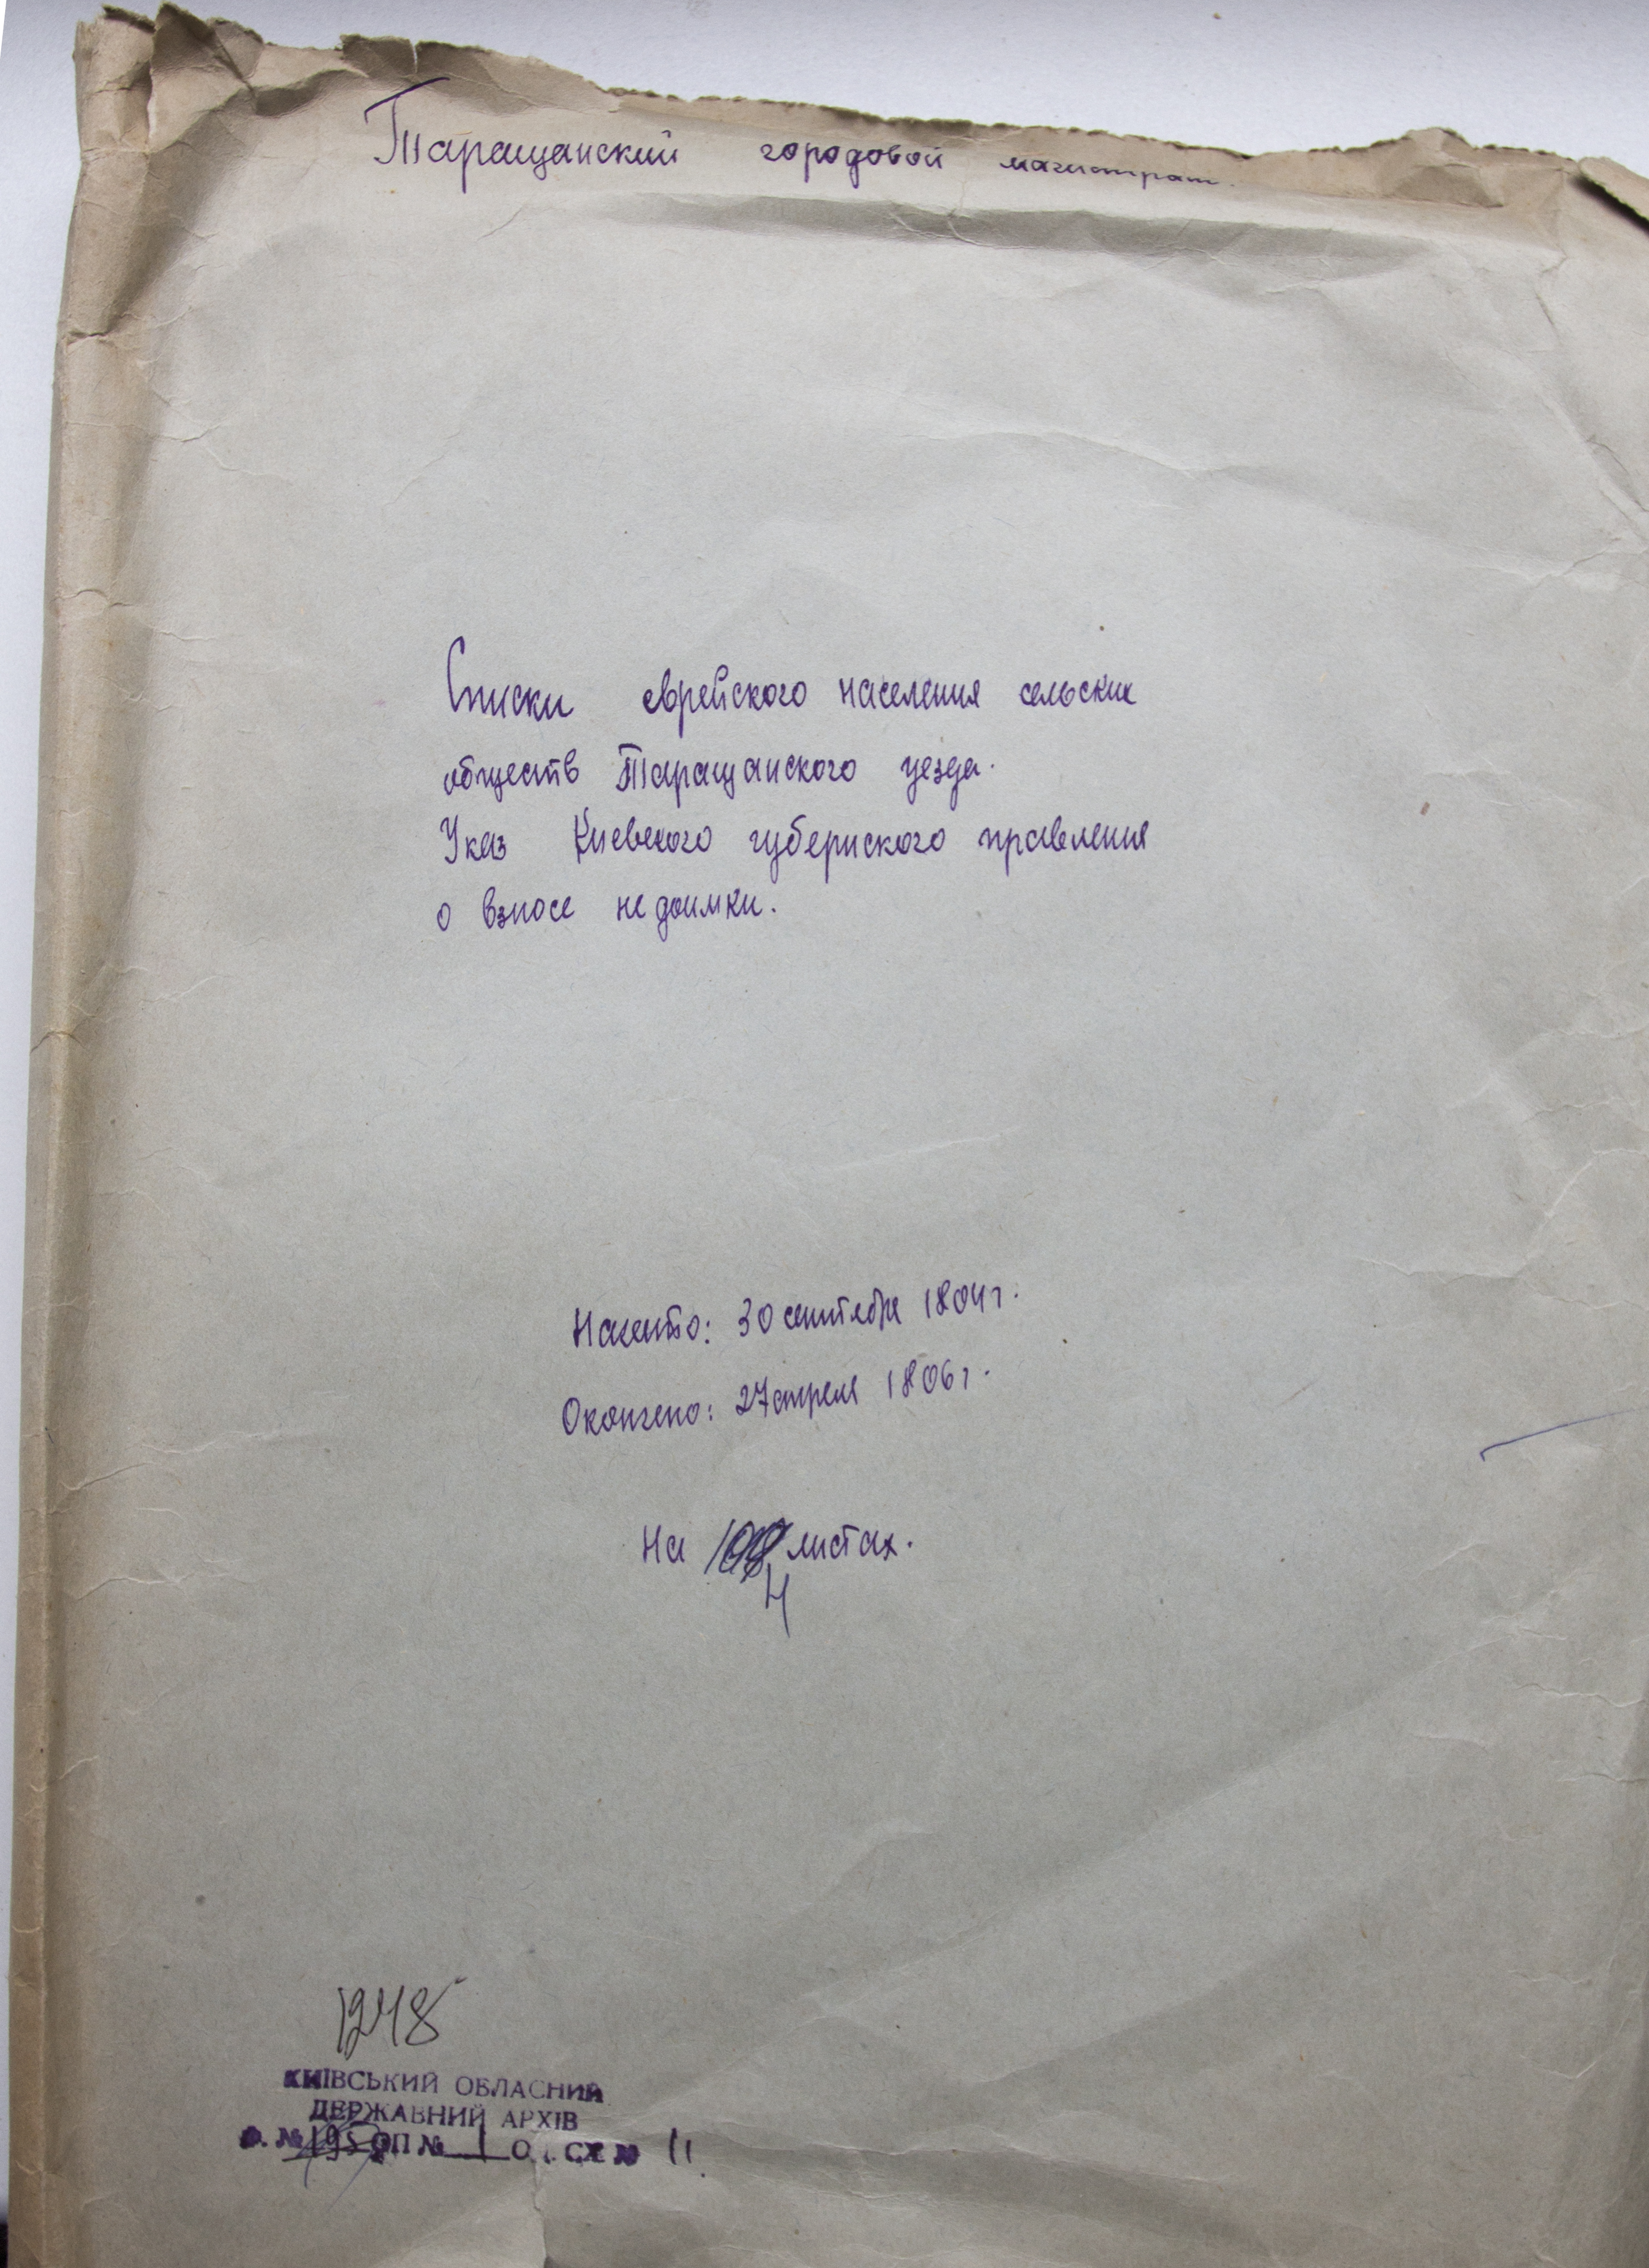 Таращанский городовой магистрат.
Списки еврейского населения сельских
обществ Таращанского уезда.
Указ Киевского губернского правления
о взносе недоимки.
Начато: 30 сентября 1804 г.
Окончено: 27 апреля 1806 г.
На листах.
4
1248
КИЇВСЬКИЙ ОБЛАСНИЙ
ДЕРЖАВНИЙ АРХІВ
Ф. № 195 ОП № 1 ОД. СХ № 11